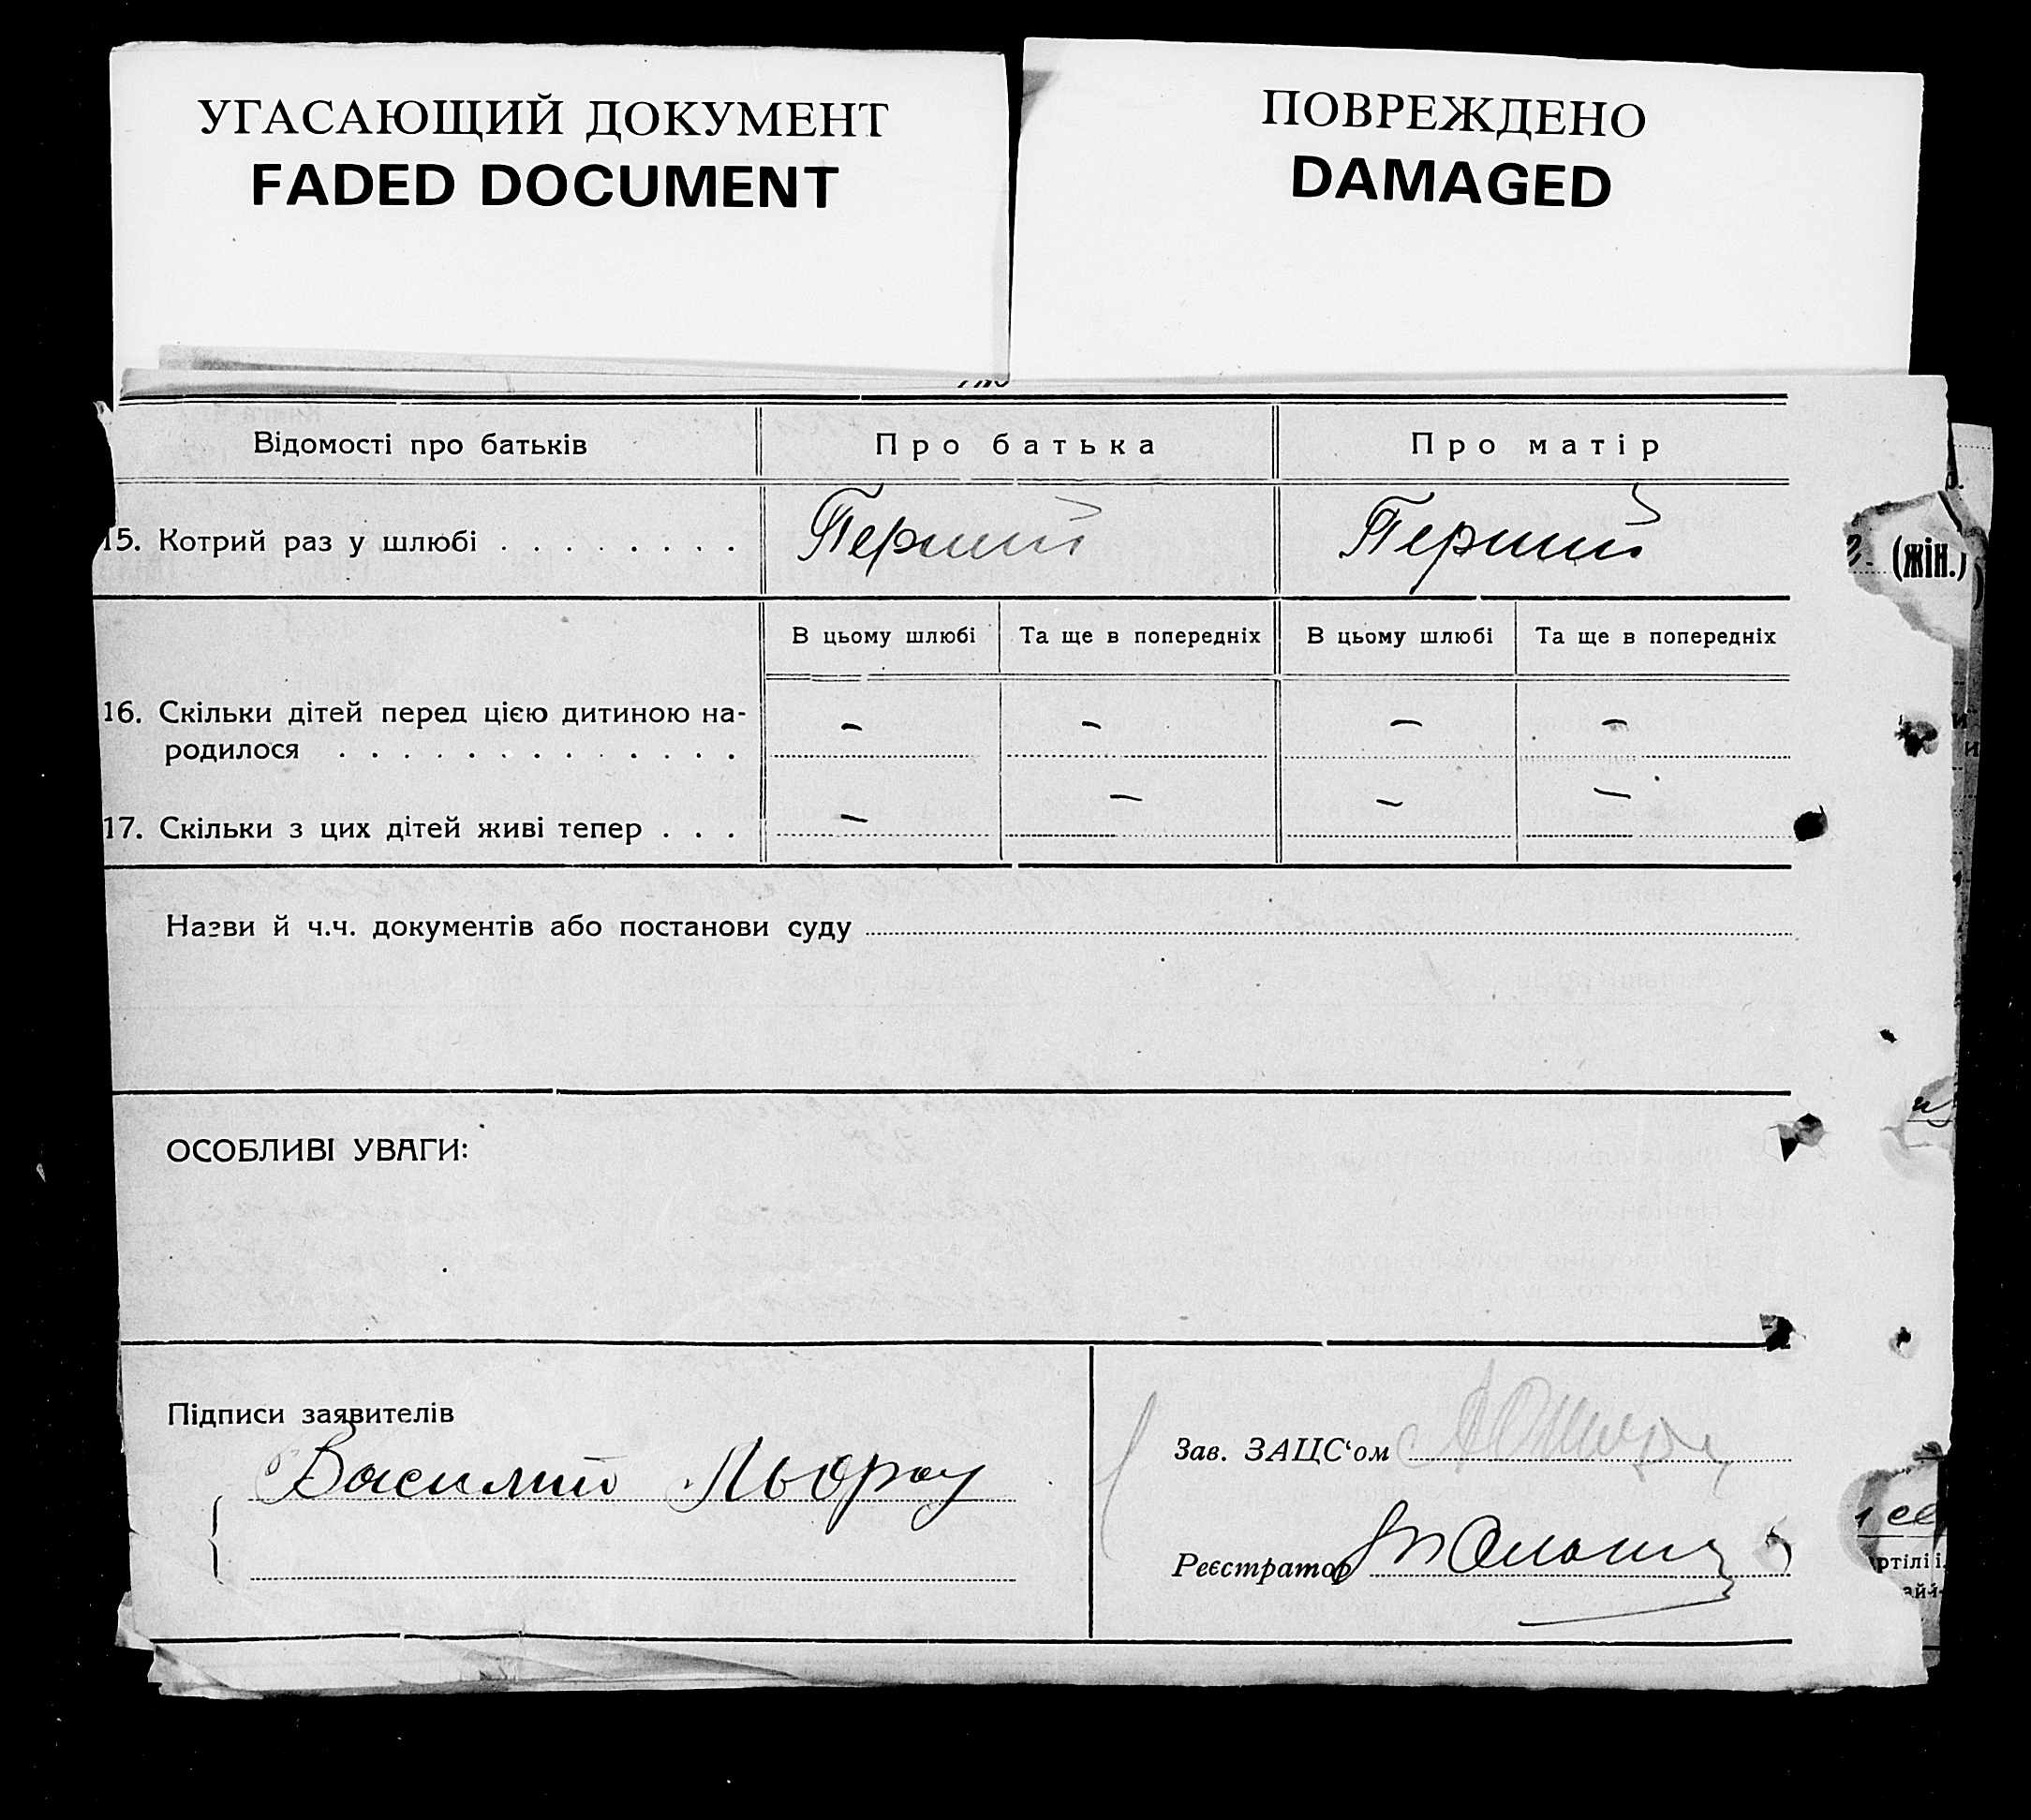 УГАСАЮЩИЙ ДОКУМЕНТ
FADED DOCUMENT
ПОВРЕЖДЕНО
DAMAGED
Відомості про батьків
Про батька
Про матір
15. Котрий раз у шлюбі . . . . . . . .
Перший
Перший
(жін.)
В цьому шлюбі
Та ще в попередніх
В цьому шлюбі
Та ще в попередніх
16. Скільки дітей перед цією дитиною на-
родилося . . . . . . . . . . . . . .
– – – –
17. Скільки з цих дітей живі тепер . . .
– – – –
Назви й ч.ч. документів або постанови суду
ОСОБЛИВІ УВАГИ:
Підписи заявителів
Василий
Зав. ЗАЦС‘ом
Реєстратор